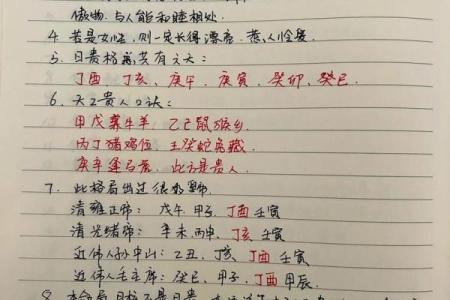 傲物,与人能和睦相处
4. 若是女命,则一定长得漂亮,惹人怜爱.
5. 日贵格总共有六天:
丁酉、丁亥、庚午、庚寅、癸卯、癸巳.
6. 天乙贵人口诀:
甲戊兼牛羊, 乙己鼠猴乡
丙丁猪鸡位 壬癸蛇兔藏
庚辛逢马虎, 此方是贵人.
7. 此格局出过很多
清雍正帝: 戊午 甲子 丁酉 壬寅
清光绪帝: 辛未、丙申、丁亥 壬寅
近伟人孙中山: 乙丑、丁亥、丁酉 壬寅
近伟人毛主席: 癸巳、甲子、丁酉 甲辰.
8.